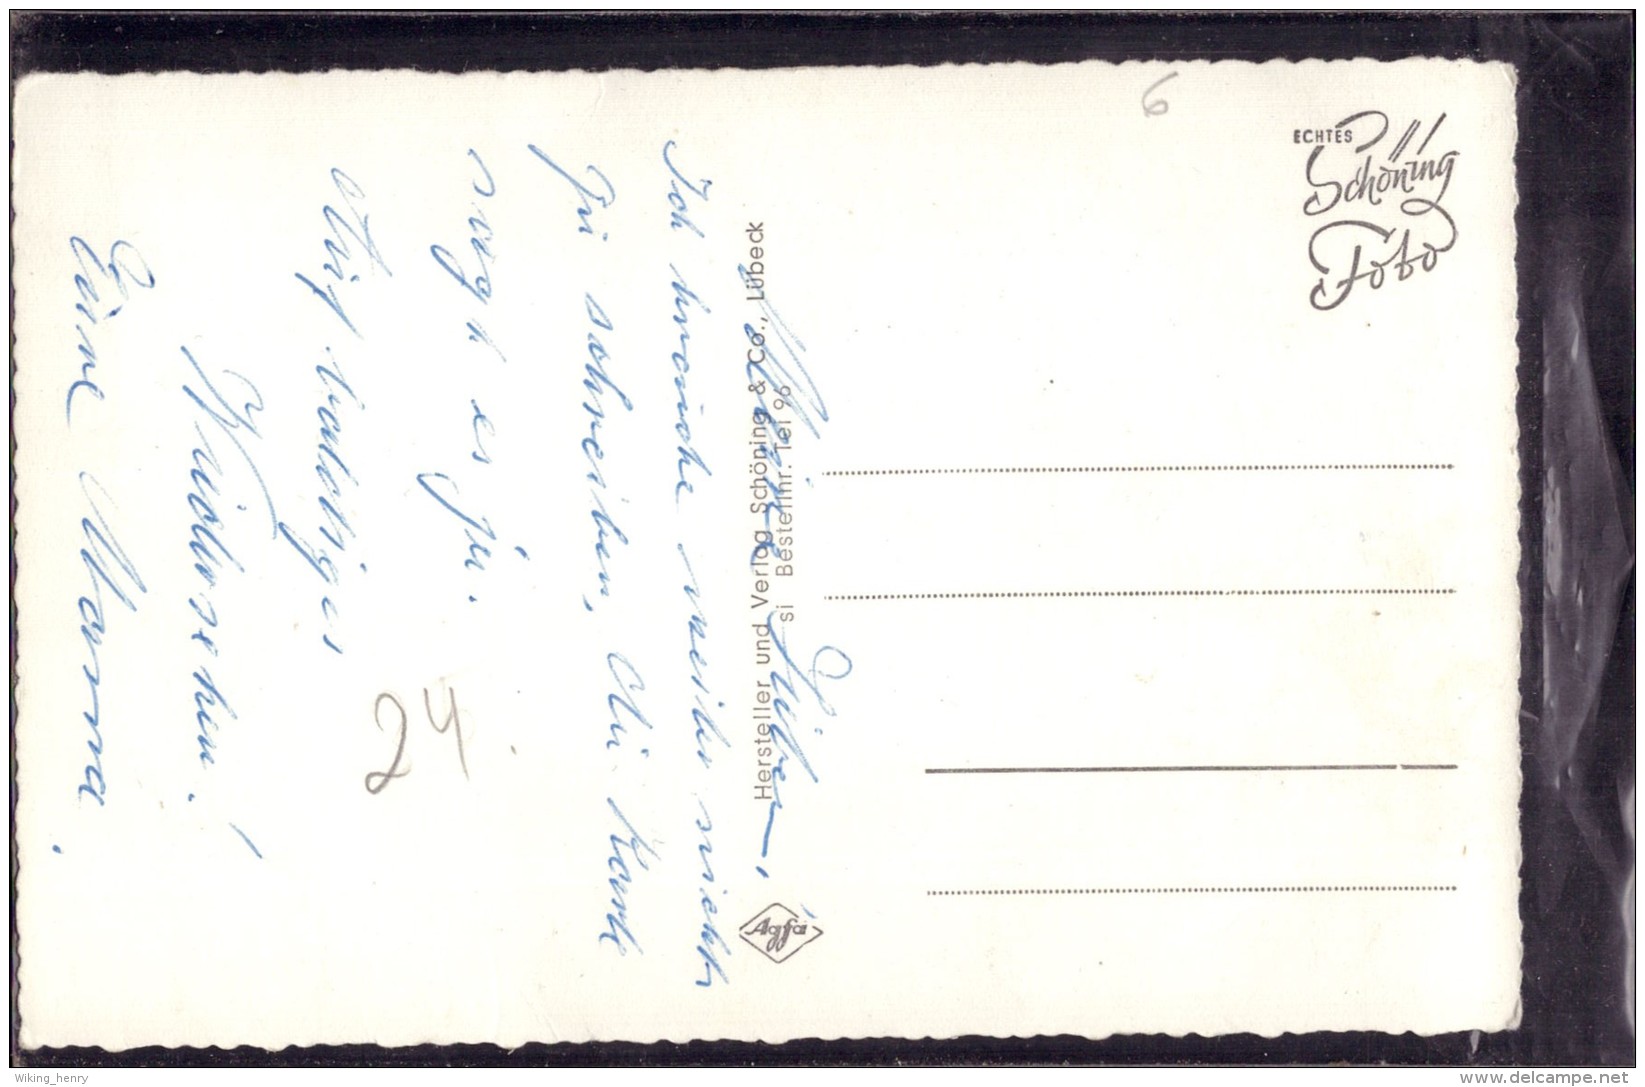 6
ECHTES
Schöning
Foto
Hersteller und Verlag Schöning & Co., Lübeck
si Bestellnr. Tei 96
Agfa
Meine Lieben,
Ich brauche weiter nicht
zu schreiben, die Karte
sagt es ja.
Auf baldiges
Wiedersehen!
Eure Mama.
24
Wiking_henry
www.delcampe.net